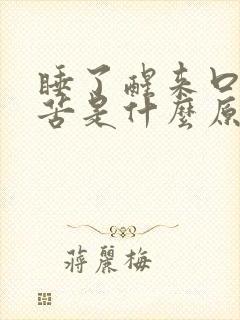 睡了醒来口
苦是什麼原
蔣麗梅